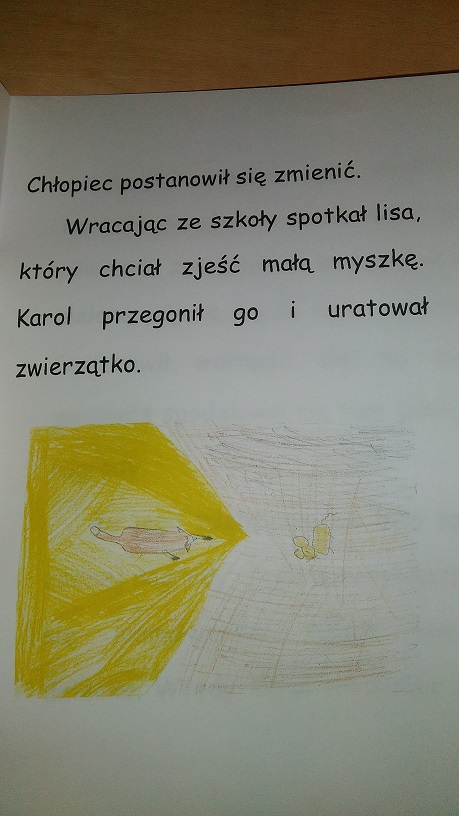 Chłopiec postanowił się zmienić.
Wracając ze szkoły spotkał lisa,
który chciał zjeść małą myszkę.
Karol przegonił go i uratował
zwierzątko.